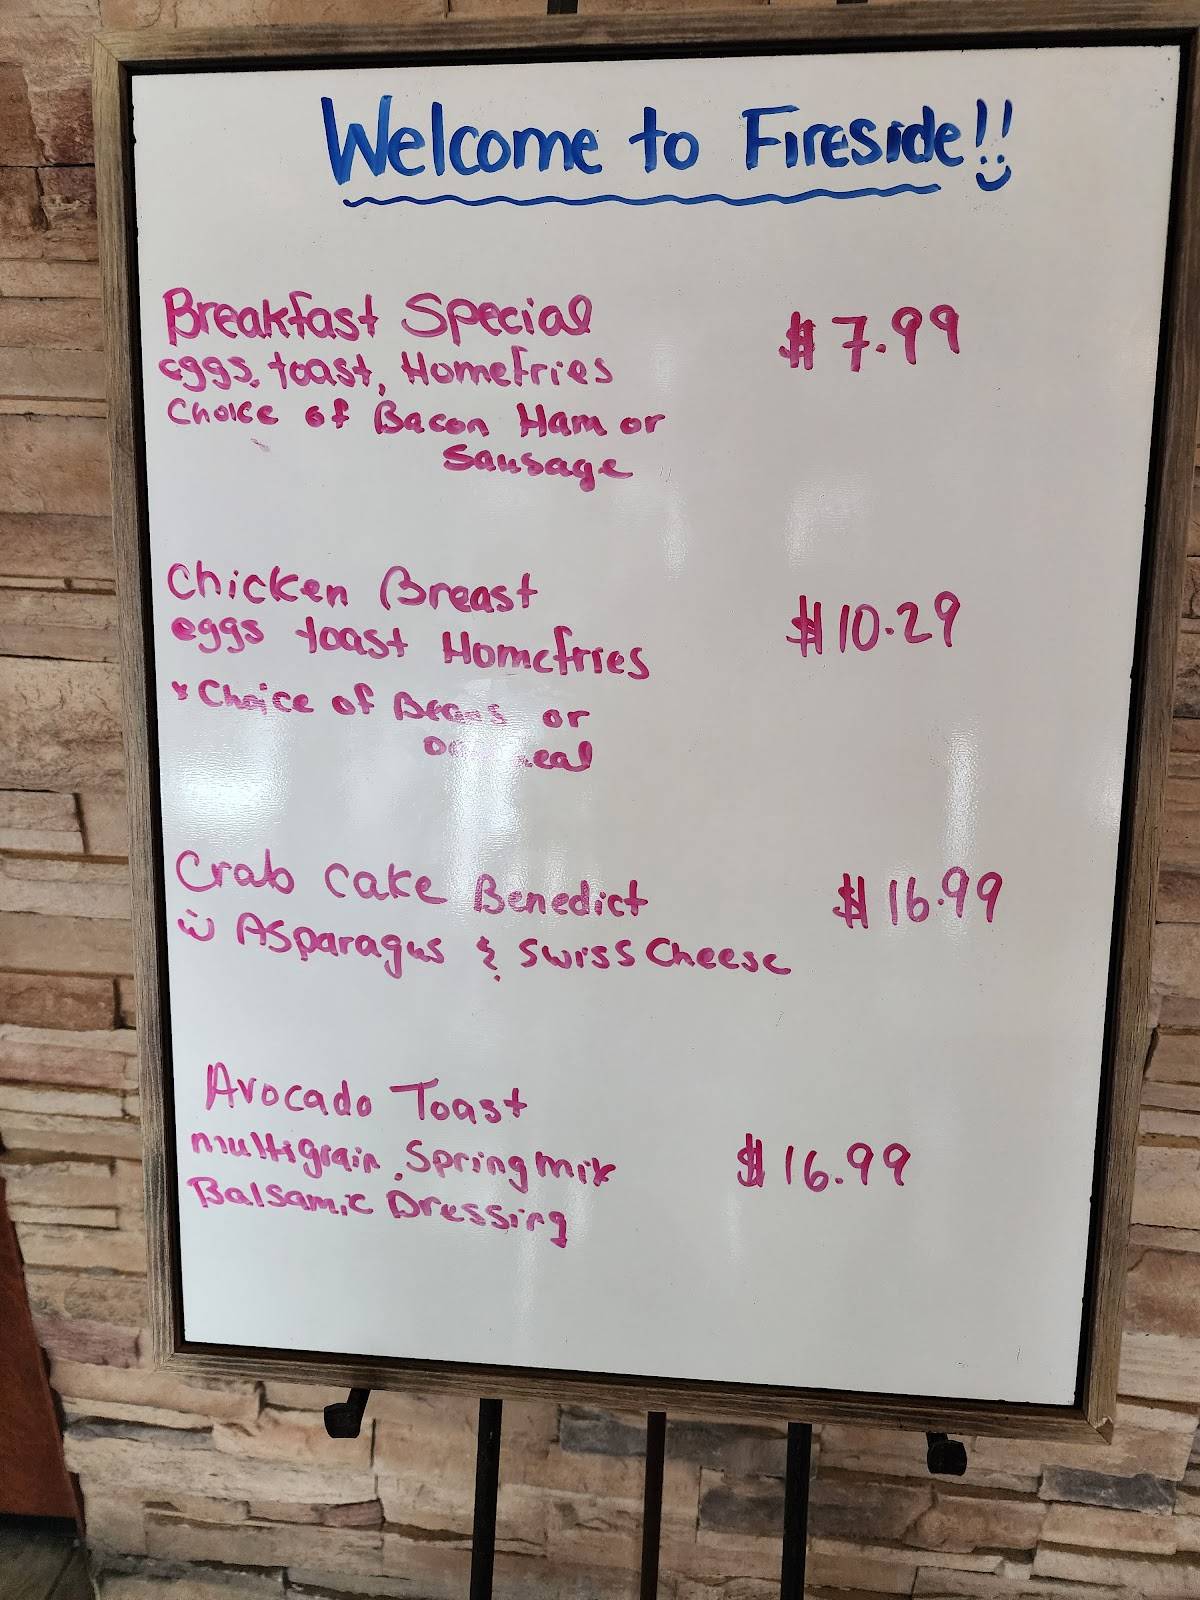 Welcome to Fireside!!
Breakfast Special $7.99
eggs, toast, Homefries
Choice of Bacon Ham or
Sausage
Chicken Breast $10.29
eggs toast Homefries
* Choice of Beans or
oatmeal
Crab Cake Benedict $16.99
w Asparagus & Swiss Cheese
Avocado Toast
multigrain, Spring mix $16.99
Balsamic Dressing